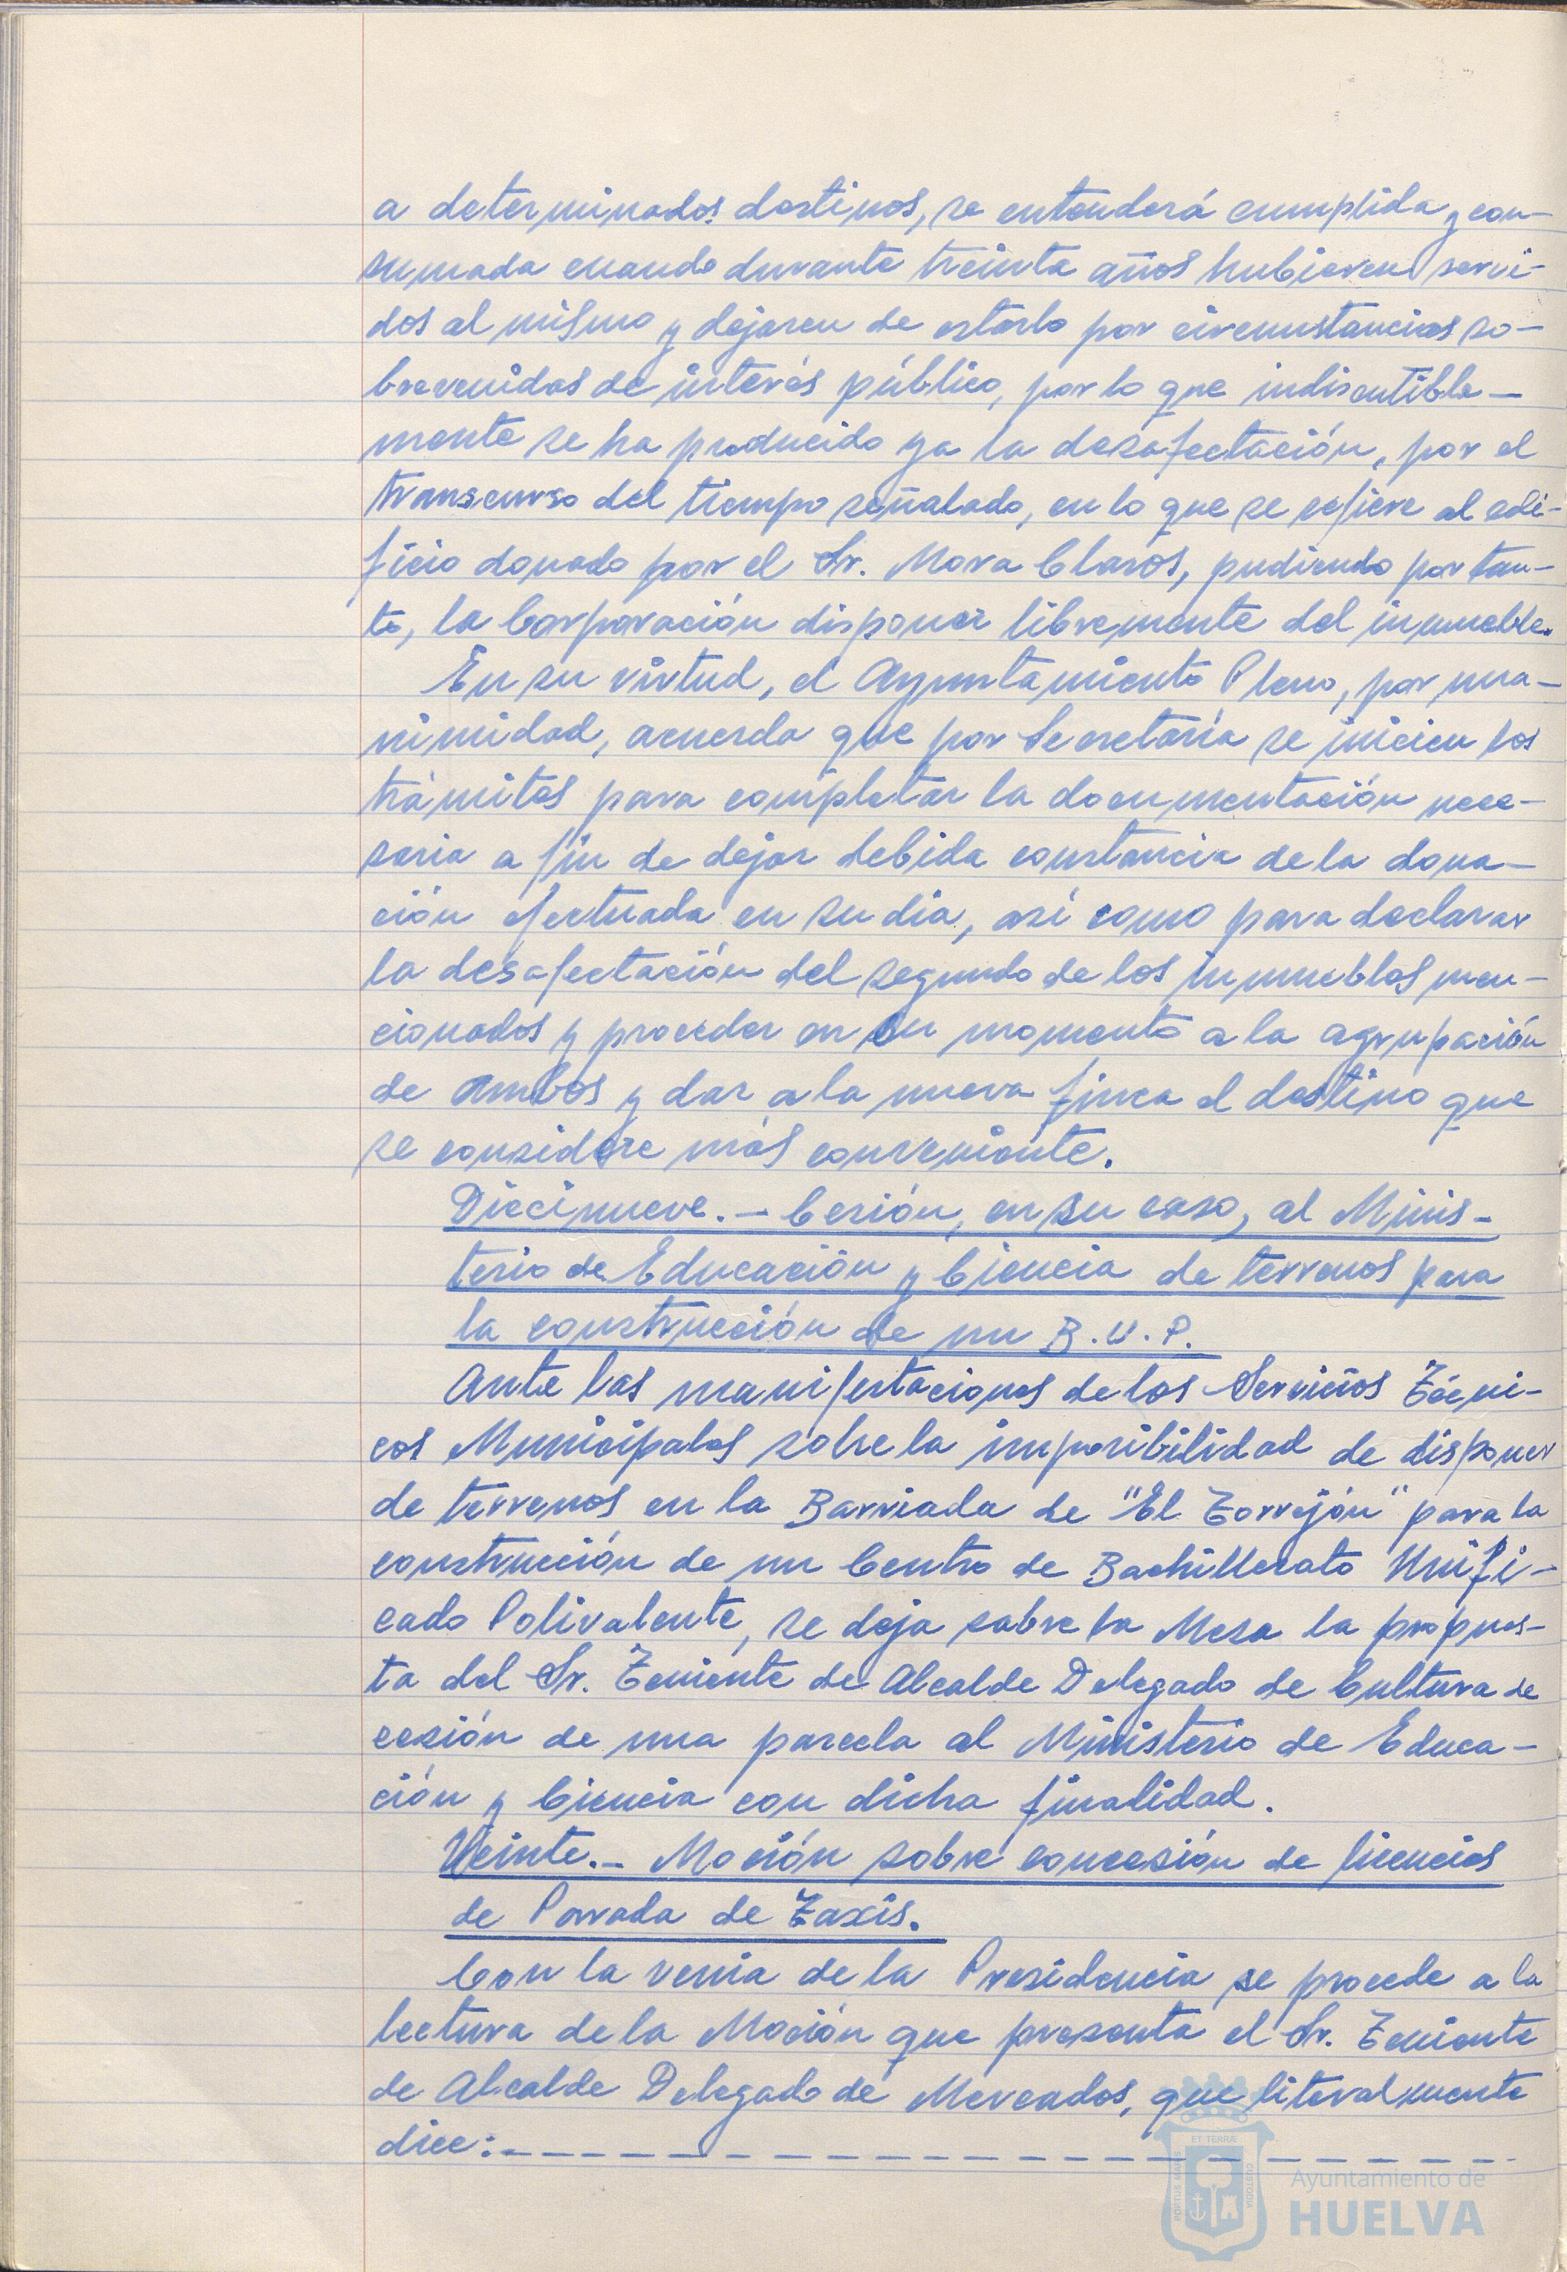 a determinados destinos, se entenderá cumplida y con-
sumada cuando durante treinta años hubieren servi-
dos al mismo y dejaren de estarlo por circunstancias so-
brevenidas de interés público, por lo que indiscutible-
mente se ha producido ya la desafectación, por el
transcurso del tiempo señalado, en lo que se refiere al edi-
ficio donado por el Sr. Mora Claros, pudiendo por tan-
to, la Corporación disponer libremente del inmueble.
En su virtud, el Ayuntamiento Pleno, por una-
nimidad, acuerda que por Secretaría se inicien los
trámites para completar la documentación nece-
saria a fin de dejar debida constancia de la dona-
ción efectuada en su día, así como para declarar
la desafectación del segundo de los inmuebles men-
cionados y proceder en su momento a la agrupación
de ambos y dar a la nueva finca el destino que
se considere más conveniente.
Diecinueve.- Cesión, en su caso, al Minis-
terio de Educación y Ciencia de terrenos para
la construcción de un B.U.P.
Ante las manifestaciones de los Servicios Técni-
cos Municipales sobre la imposibilidad de disponer
de terrenos en la Barriada de "El Torrejón" para la
construcción de un Centro de Bachillerato Unifi-
cado Polivalente, se deja sobre la Mesa la propues-
ta del Sr. Teniente de Alcalde Delegado de Cultura de
cesión de una parcela al Ministerio de Educa-
ción y Ciencia con dicha finalidad.
Veinte.- Moción sobre concesión de licencias
de Parada de Taxis.
Con la venia de la Presidencia se procede a la
lectura de la Moción que presenta el Sr. Teniente
de Alcalde Delegado de Mercados, que literalmente
dice:- - - - - - - - - - - - - - - - - -
ET TERRÆ
PORTUS MARIS
CUSTODIA
Ayuntamiento de
HUELVA